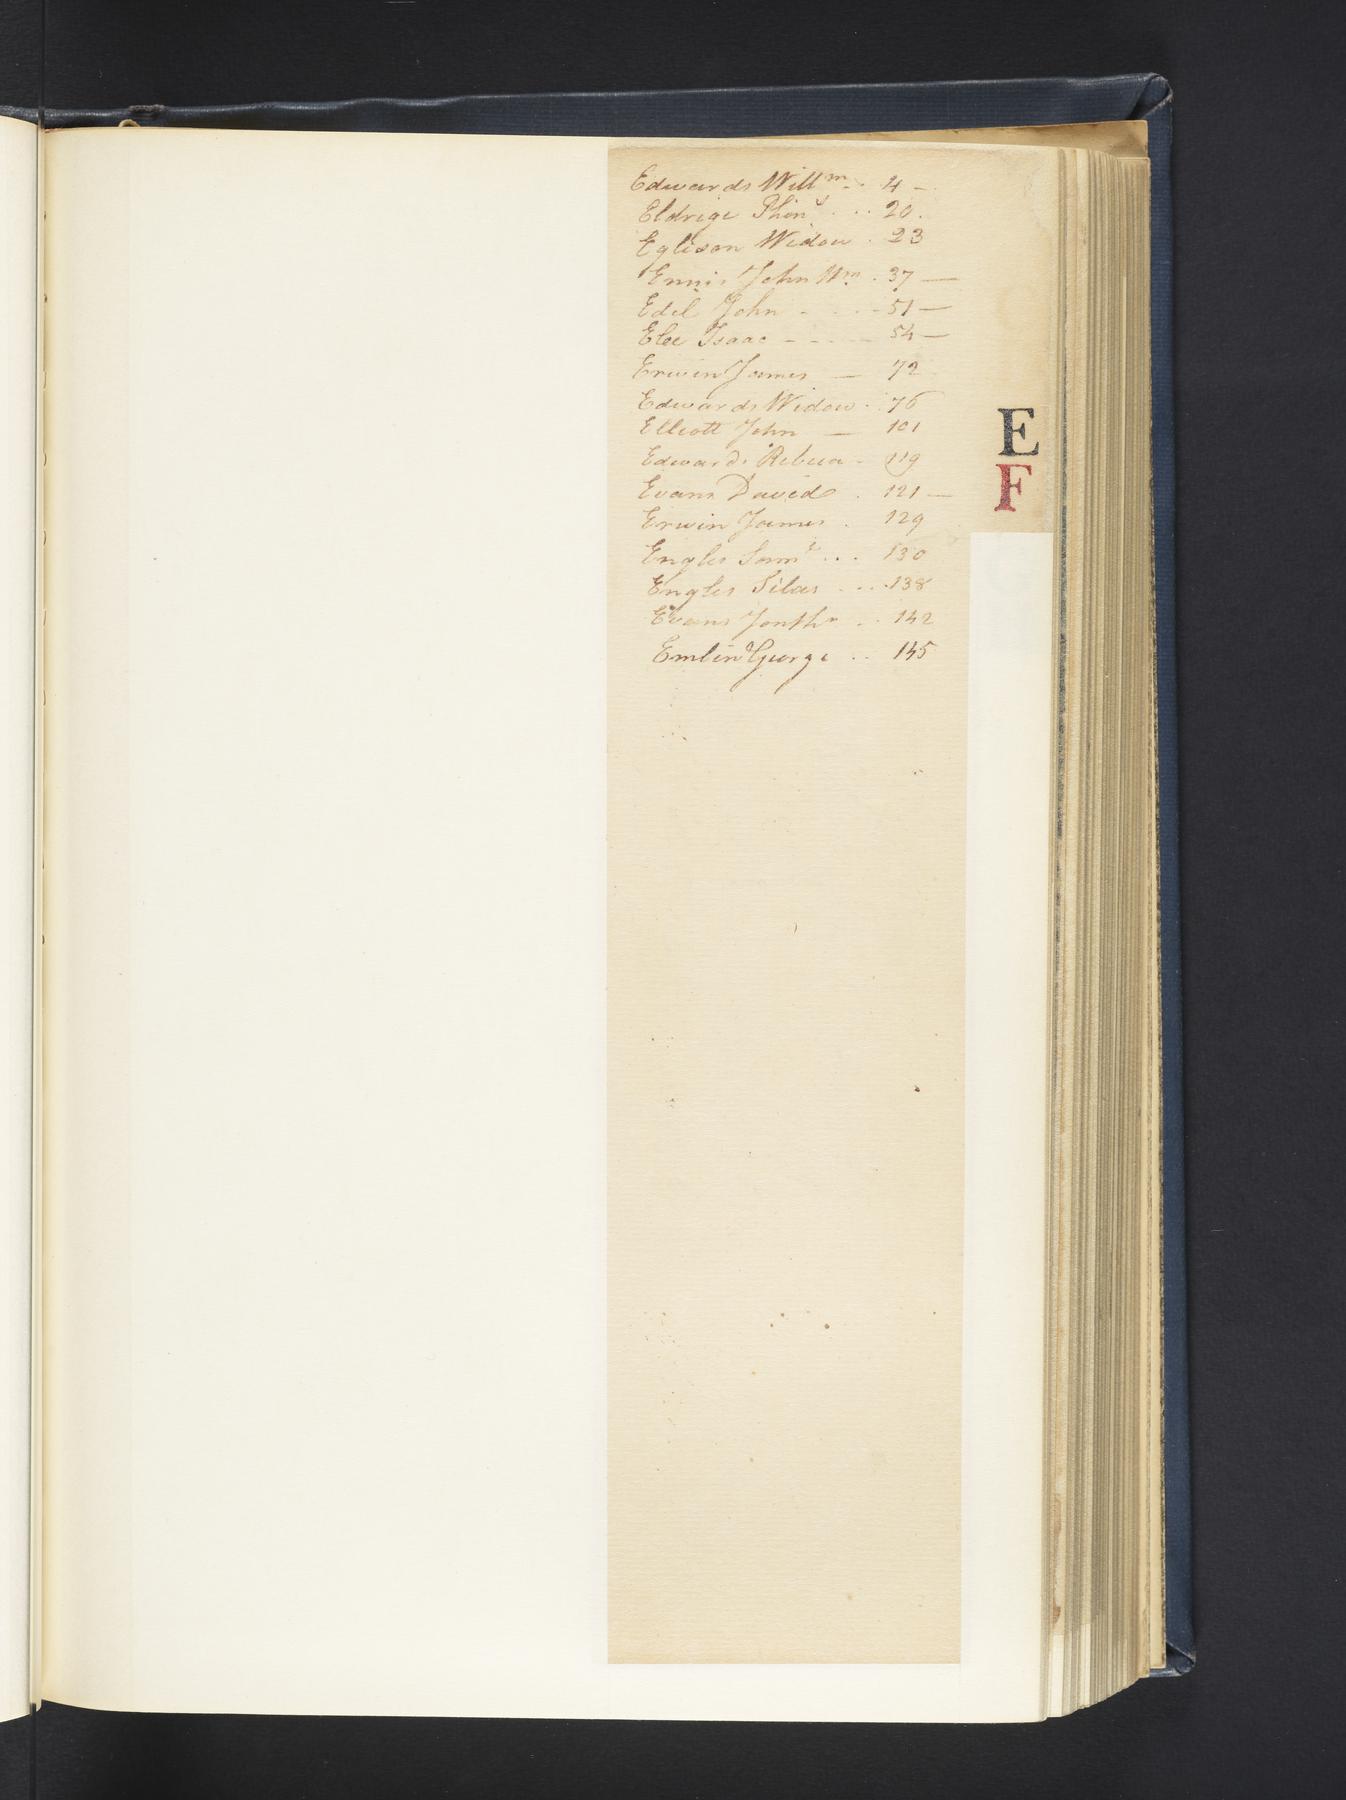 Edwards Willm . 4 -
Eldrige Phins . . . 20 .
Eglison Widow . 23
Ennis John Wm . 37 —
Edel John - . . - 51 —
Elee Isaac - - - - 54 —
Erwin James — 72
Edwards Widow . 76
Elliott John — 101
Edwards Rebeca - 119
Evans David . 121 —
Erwin James . 129
Engles Saml . . . 130
Engles Silas . . . 138
Evans Jonthn . . 142
Emlin George . . 145
E
F